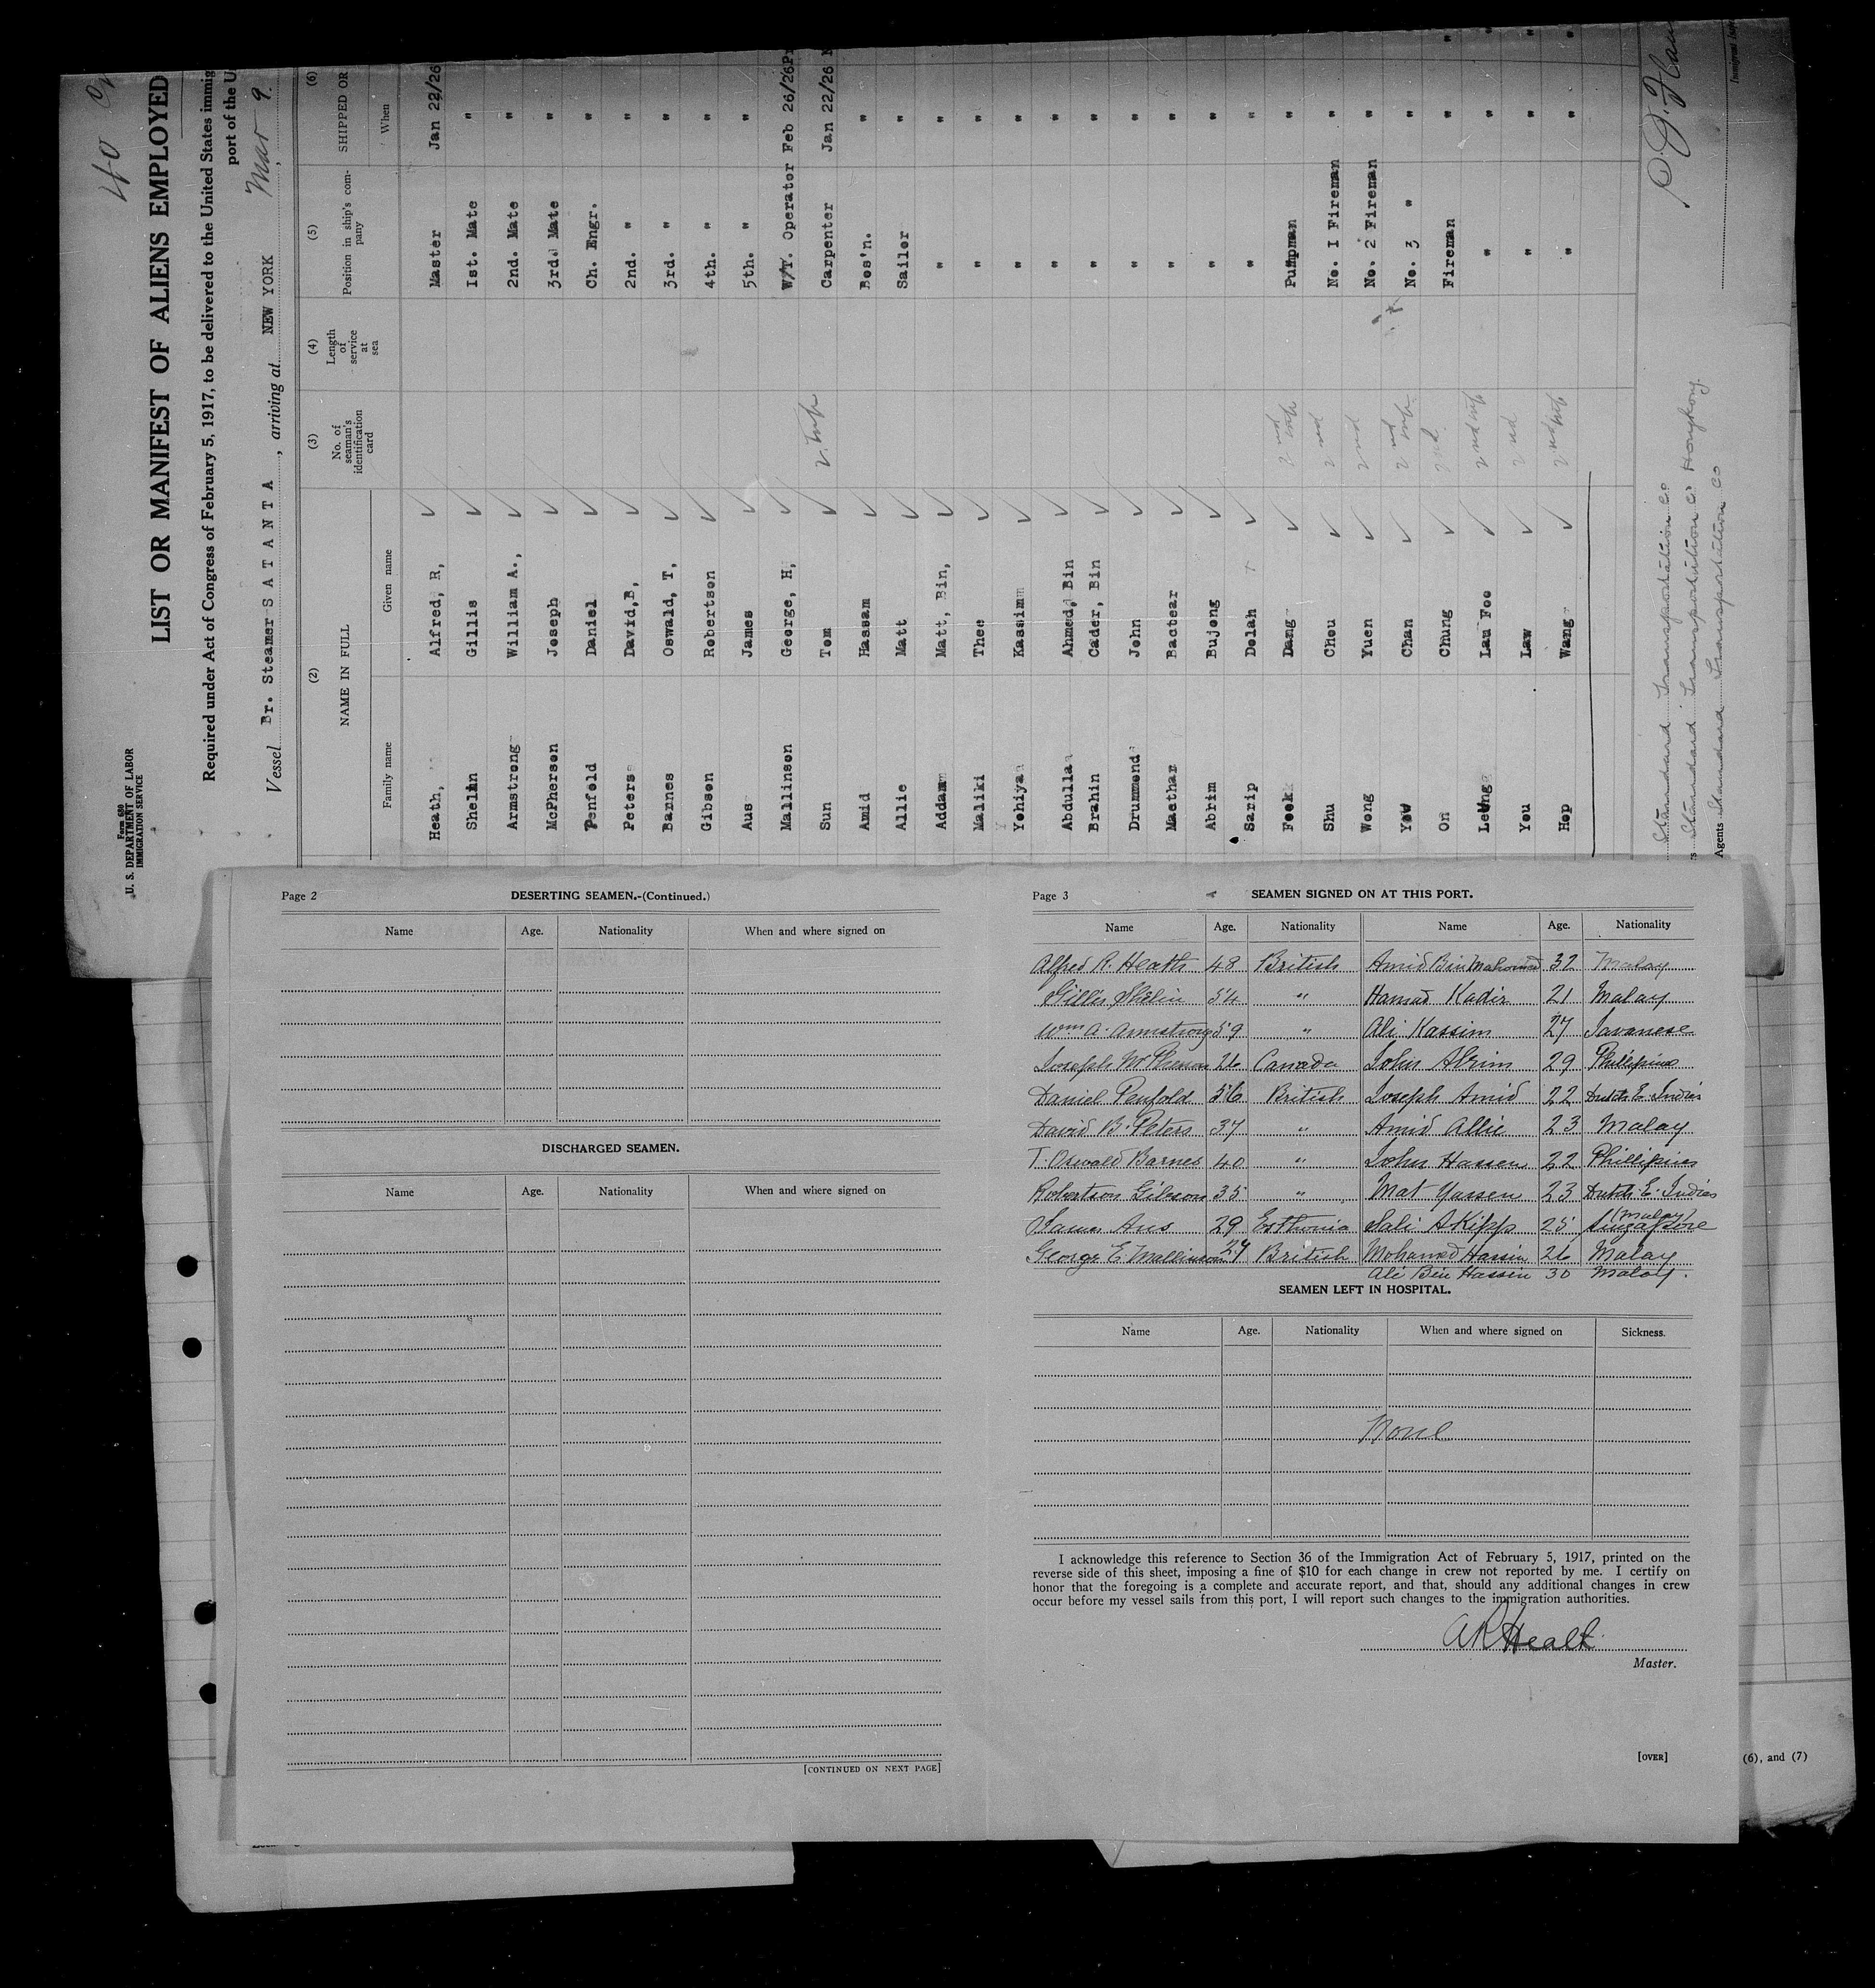 40
Form 680
U. S. DEPARTMENT OF LABOR
IMMIGRATION SERVICE
LIST OR MANIFEST OF ALIENS EMPLOYED
Required under Act of Congress of February 5, 1917, to be delivered to the United States immig
port of the U
Vessel Br. Steamer S A T A N T A , arriving at NEW YORK Mar 9
(2) (3) (4) (5) (6)
NAME IN FULL No. of seaman's identification card Length of service at sea Position in ship's company SHIPPED OR
Family name Given name When
Heath, Alfred, R, Master Jan 22/26
Shelin Gillis Ist. Mate "
Armstrong William A., 2nd. Mate "
McPherson Joseph 3rd. Mate "
Penfold Daniel Ch. Engr. "
Peters David,B, 2nd. " "
Barnes Oswald, T, 3rd. " "
Gibson Robertson 4th. " "
Aus James 5th. " "
Mallinson George, H, W/T. Operator Feb 26/26
Sun Tom Carpenter Jan 22/26
Amid Hassam Bos'n. "
Allie Matt Sailor "
Addam Matt, Bin, " "
Maliki Thee " "
Yohiya Kassim " "
Abdulla Ahmed, Bin " "
Brahin Cader, Bin " "
Drummond John " "
Maethar Bactear " "
Abrim Bujong " "
Sarip Dolah " "
Fook Dang 2nd Pumpman "
Shu Chou 2nd No. I Fireman "
Wong Yuen 2nd No. 2 Fireman "
You Chan 2nd No. 3 " "
On Chung 2nd Fireman "
Leung Lau Foo 2nd " "
You Law 2nd " "
Hop Wang 2nd " "
Standard Transportation Co.
Standard Transportation Co Hongkong.
Agents Standard Transportation Co
Page 2 DESERTING SEAMEN.-(Continued.)
Name Age. Nationality When and where signed on
DISCHARGED SEAMEN.
Name Age. Nationality When and where signed on
[CONTINUED ON NEXT PAGE]
Page 3 SEAMEN SIGNED ON AT THIS PORT.
Name Age. Nationality Name Age. Nationality
Alfred R. Heath 48 British Amid Bin Mahomed 32 Malay
Gillis Shelin 54 " Hamad Kadir 21 Malay
Wm A. Armstrong 59 " Ali Kassim 27 Javanese
Joseph McPherson 26 Canada John Abrim 29 Phillipines
Daniel Penfold 56 British Joseph Amid 22 Dutch E. Indies
David B. Peters 37 " Amid Allie 23 Malay
T. Oswald Barnes 40 " John Hassen 22 Phillipines
Robertson Gibson 35 " Mat Yassen 23 Dutch E. Indies
James Aus 29 Esthonia Sali AKipp 25 (Malay) Singapore
George E. Mallinson 27 British Mohamed Hassin 26 Malay
Ali Bin Hassin 30 Malay.
SEAMEN LEFT IN HOSPITAL.
Name Age. Nationality When and where signed on Sickness.
None
I acknowledge this reference to Section 36 of the Immigration Act of February 5, 1917, printed on the
reverse side of this sheet, imposing a fine of $10 for each change in crew not reported by me. I certify on
honor that the foregoing is a complete and accurate report, and that, should any additional changes in crew
occur before my vessel sails from this port, I will report such changes to the immigration authorities.
A R Heath
Master.
[OVER]
(6), and (7)